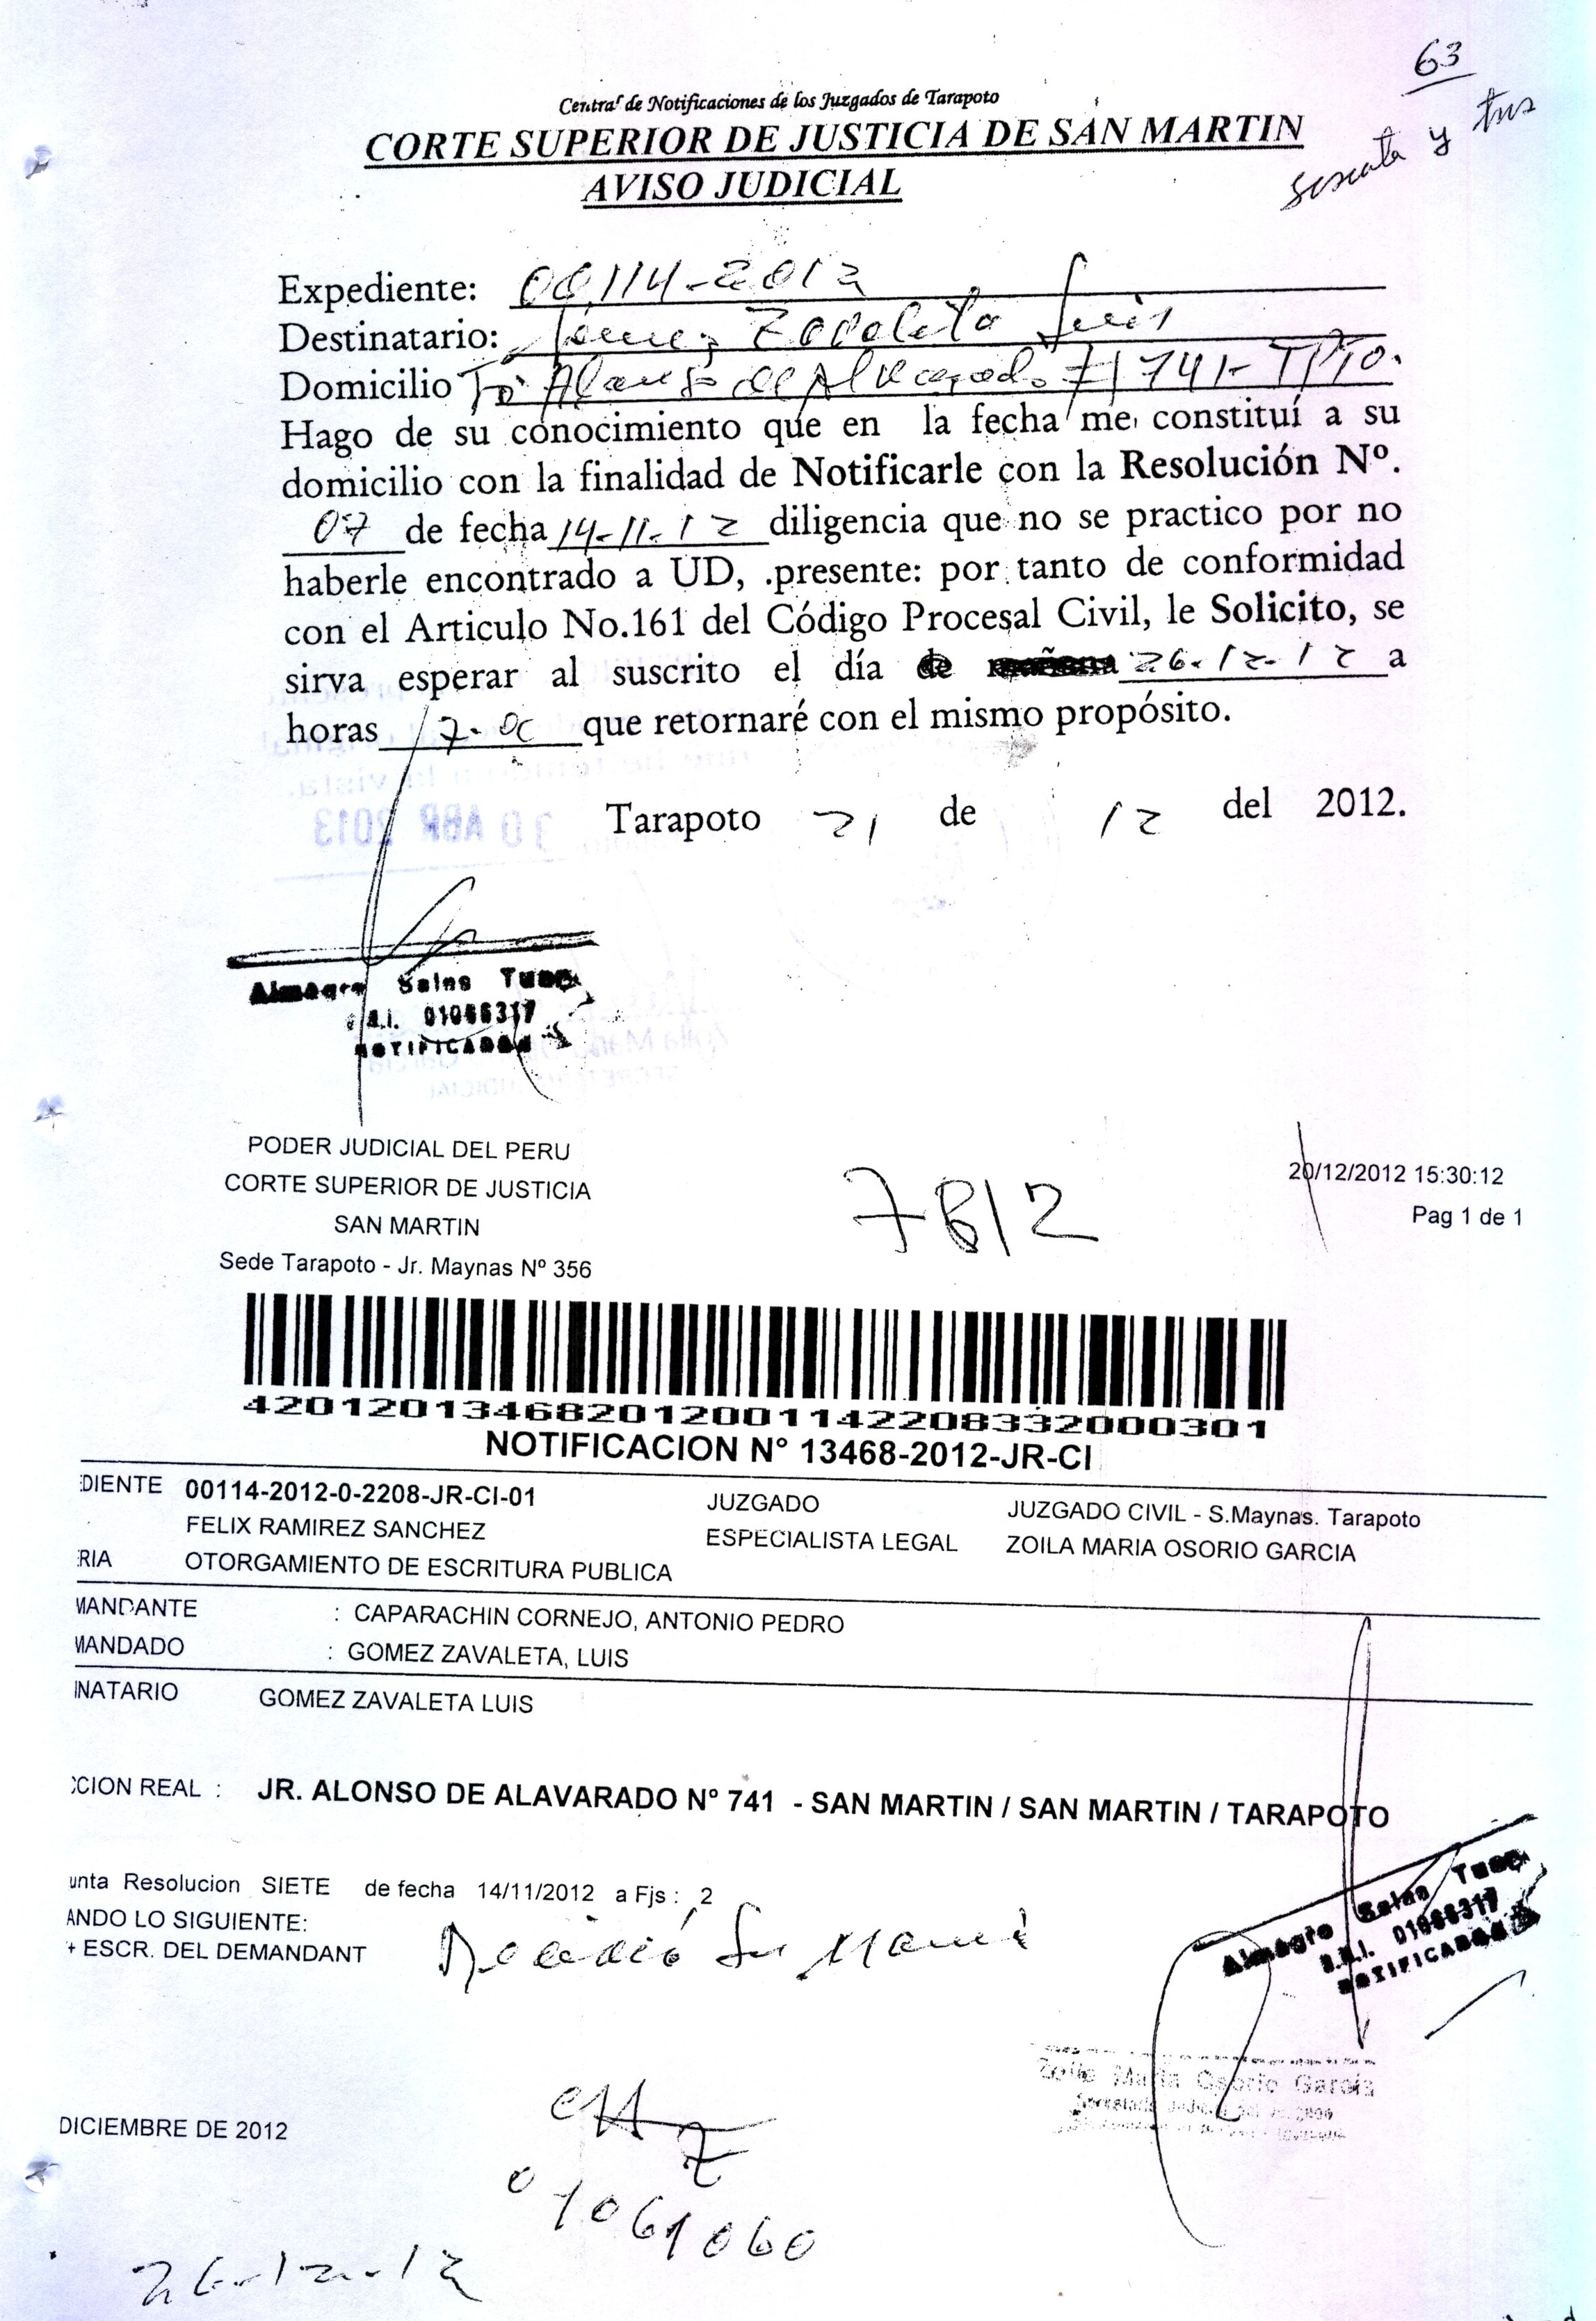 63
sesenta y tres
Central de Notificaciones de los Juzgados de Tarapoto
CORTE SUPERIOR DE JUSTICIA DE SAN MARTIN
AVISO JUDICIAL
Expediente: 00114-2012
Destinatario: Gomez Zavaleta Luis
Domicilio Jr. Alonso de Alvarado # 741- TPTO.
Hago de su conocimiento que en la fecha me constituí a su
domicilio con la finalidad de Notificarle con la Resolución Nº.
07 de fecha 14-11-12 diligencia que no se practico por no
haberle encontrado a UD, .presente: por tanto de conformidad
con el Articulo No.161 del Código Procesal Civil, le Solicito, se
sirva esperar al suscrito el día de mañana 26-12-12 a
horas 17-00 que retornaré con el mismo propósito.
30 ABR 2013
Tarapoto 21 de 12 del 2012.
Almagro Salas
D.N.I. 01066317
NOTIFICADOR
PODER JUDICIAL DEL PERU
CORTE SUPERIOR DE JUSTICIA
SAN MARTIN
Sede Tarapoto - Jr. Maynas Nº 356
7812
20/12/2012 15:30:12
Pag 1 de 1
420120134682012001142208332000301
NOTIFICACION N° 13468-2012-JR-CI
DIENTE 00114-2012-0-2208-JR-CI-01 JUZGADO JUZGADO CIVIL - S.Maynas. Tarapoto
FELIX RAMIREZ SANCHEZ ESPECIALISTA LEGAL ZOILA MARIA OSORIO GARCIA
RIA OTORGAMIENTO DE ESCRITURA PUBLICA
MANDANTE : CAPARACHIN CORNEJO, ANTONIO PEDRO
MANDADO : GOMEZ ZAVALETA, LUIS
INATARIO GOMEZ ZAVALETA LUIS
CCION REAL : JR. ALONSO DE ALAVARADO N° 741 - SAN MARTIN / SAN MARTIN / TARAPOTO
unta Resolucion SIETE de fecha 14/11/2012 a Fjs : 2
ANDO LO SIGUIENTE:
+ ESCR. DEL DEMANDANT
Recibió su mamá
Almagro Salas
D.N.I. 01066317
NOTIFICADOR
Zoila Maria Osorio Garcia
DICIEMBRE DE 2012
01061060
26-12-12